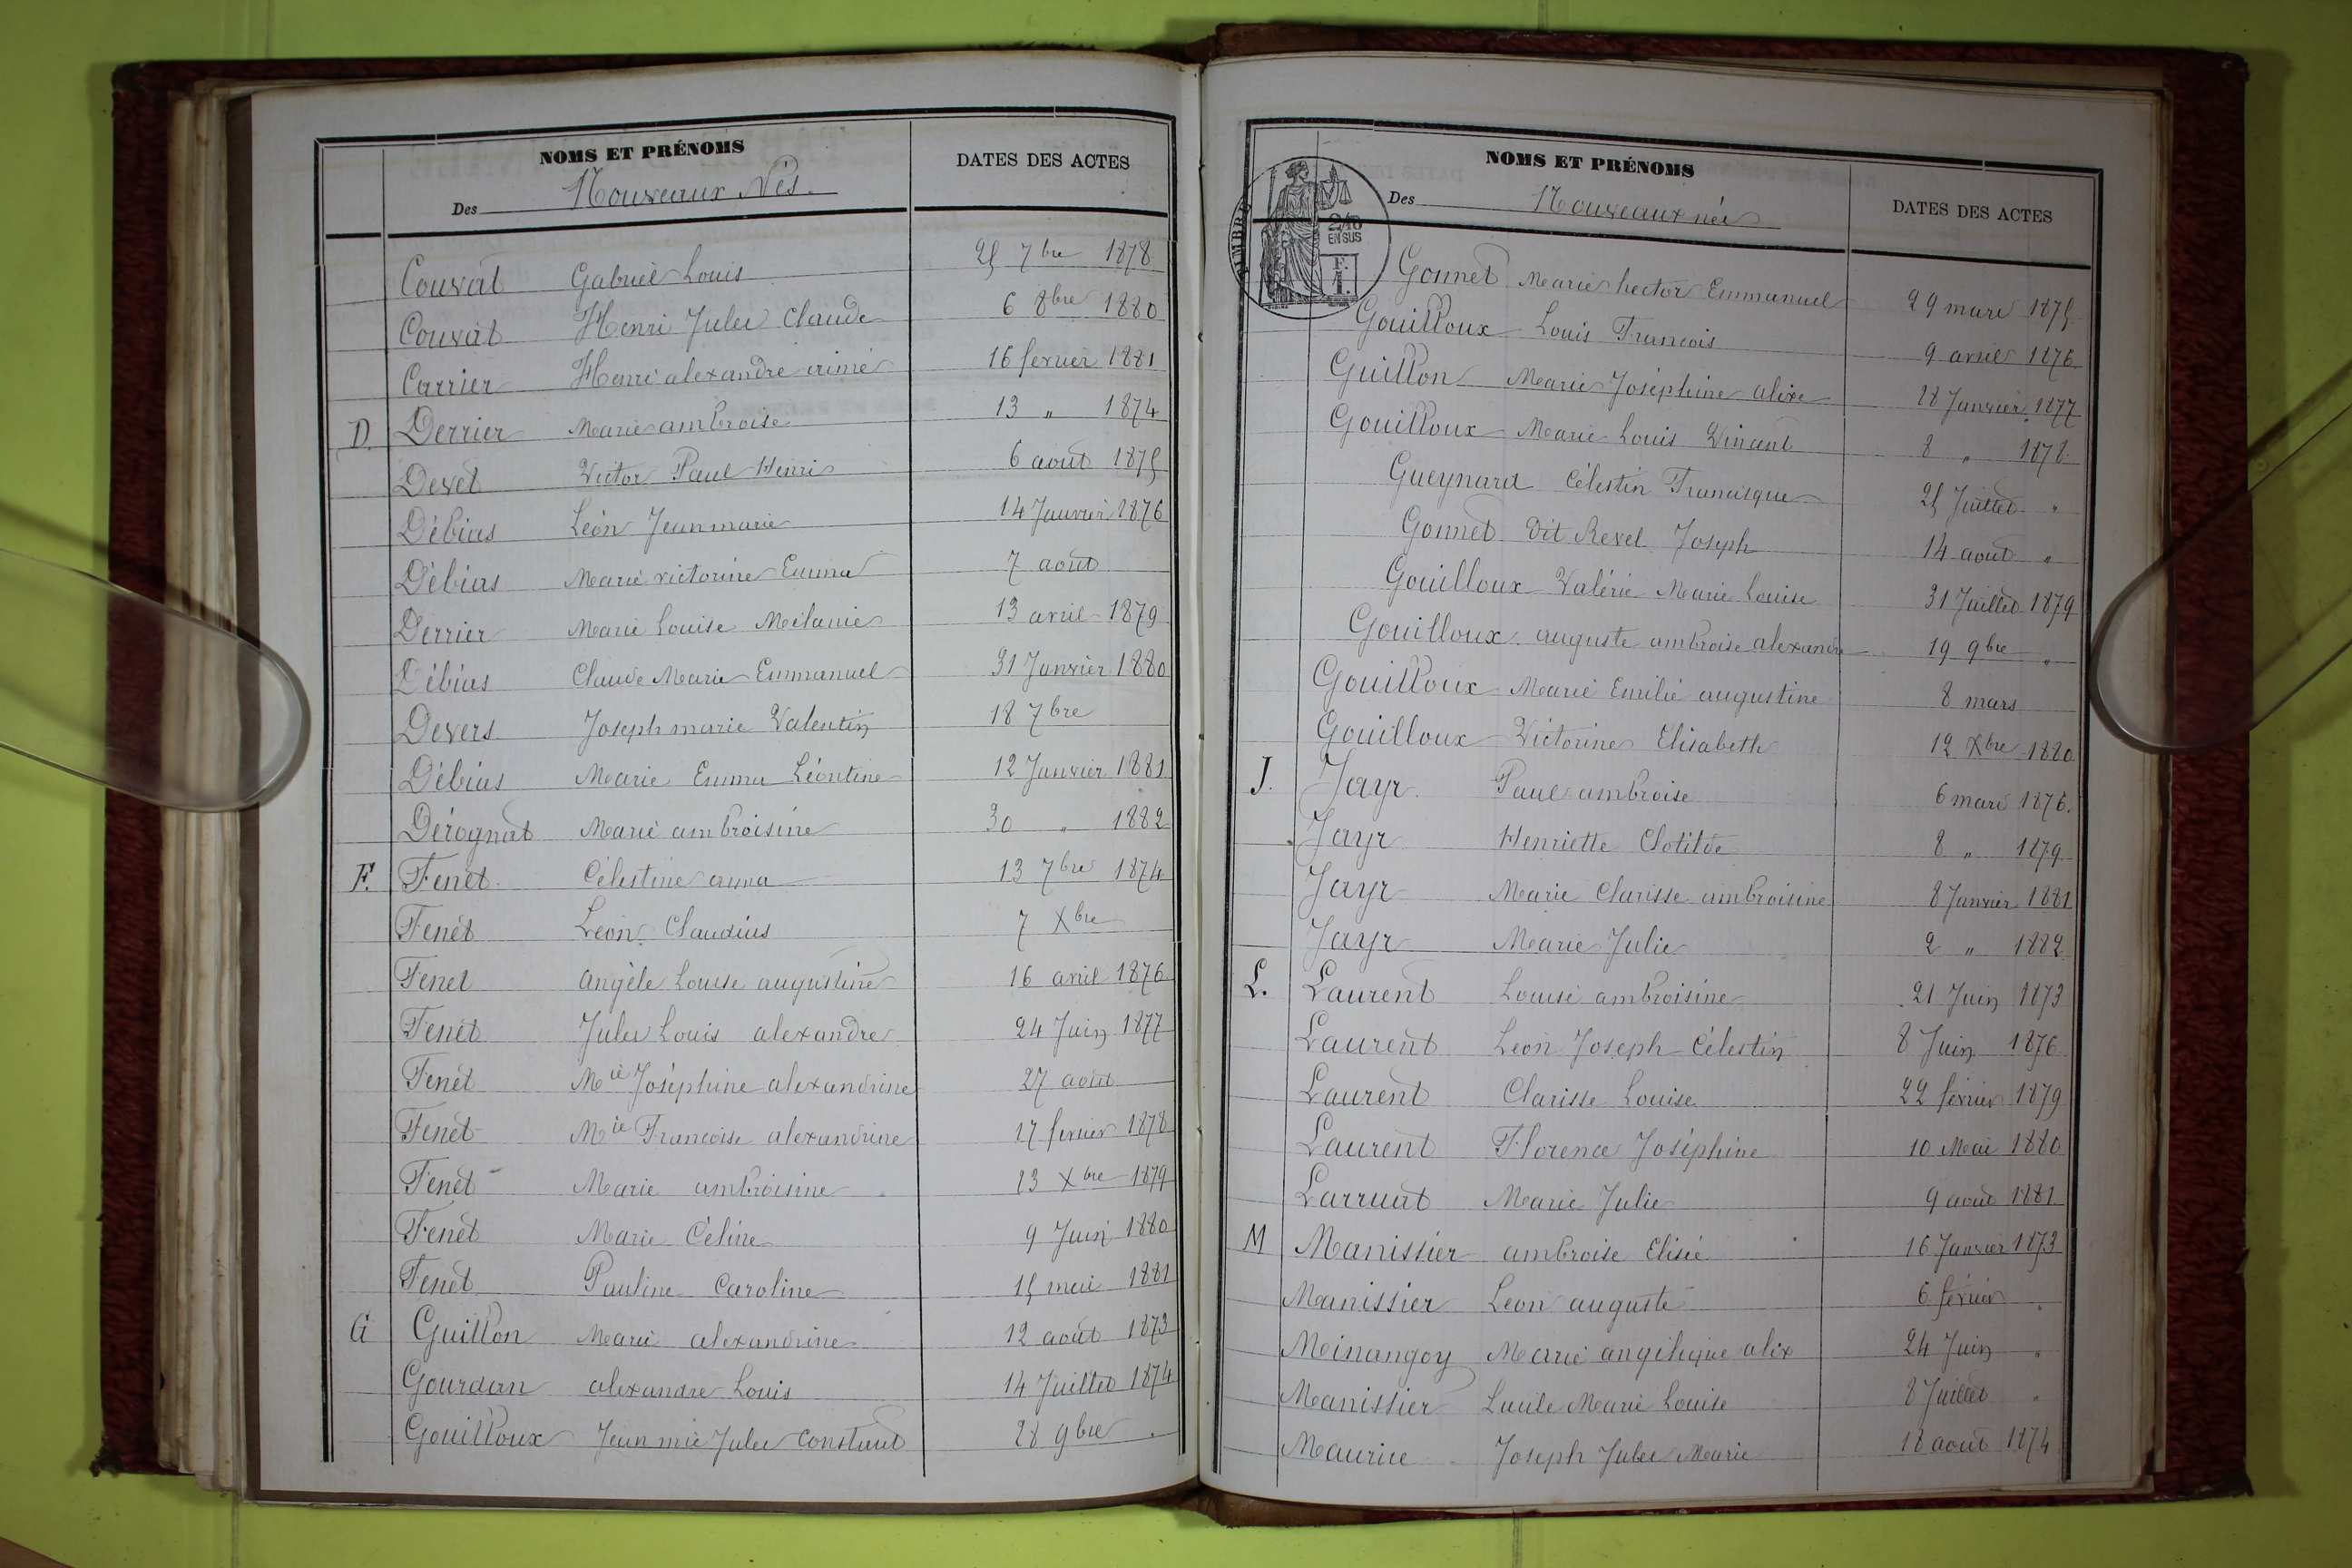 NOMS ET PRÉNOMS
Des Nouveaux Nés.
DATES DES ACTES
Couvat Gabriel Louis 25 7bre 1878
Couvat Henri Jules Claude 6 8bre 1880
Carrier Henri alexandre aimé 16 fevrier 1881
D. Derrier Marie ambroise 13 " 1874
Devet Victor Paul Henri 6 août 1875
Débias Léon Jean marie 14 Janvier 1876
Débias Marie victorine Emma 7 août
Derrier Marie Louise Mélanie 13 avril 1879
Débias Claude Marie Emmanuel 31 Janvier 1880
Devers Joseph marie Valentin 18 7bre
Débias Marie Emma Léontine 12 Janvier 1881
Dérognat Marie ambroisine 30 " 1882
F. Fenét Célestine anna 13 7bre 1874
Fenét Léon Claudius 7 Xbre
Fenet angèle Louise augustine 16 avril 1876
Fenét Jules Louis alexandre 24 Juin 1877
Fenét Mie Joséphine alexandrine 27 août
Fenét Mie Francoise alexandrine 17 fevrier 1878
Fenét Marie ambroisine 23 Xbre 1879
Fenét Marie Céline 9 Juin 1880
Fenét Pauline Caroline 15 mai 1881
G Guillon Marie alexandrine 12 août 1873
Gourdan alexandre Louis 14 Juillet 1874
Gouilloux Jean mie Jules Constant 28 9bre
TIMBRE
2/10
EN SUS
F.
1.
NOMS ET PRÉNOMS
Des Nouveaux nés
DATES DES ACTES
Gonnet Marie hector Emmanuel 29 mars 1875
Gouilloux Louis Francois 9 avril 1876
Guillon Marie Joséphine alixe 28 Janvier 1877
Gouilloux Marie Louis Vincent 8 " 1878
Gueynard Célestin Francisque 25 Juillet "
Gonnet Dit Revel Joseph 14 août "
Gouilloux Valérie Marie Louise 31 Juillet 1879
Gouilloux auguste ambroise alexandre 19 9bre "
Gouilloux Marie Emilie augustine 8 mars
Gouilloux Victorine Elisabeth 12 Xbre 1880
J. Jayr Paul ambroise 6 mars 1876.
Jayr Henriette Clotilde 8 " 1879
Jayr Marie Clarisse ambroisine 8 Janvier 1881
Jayr Marie Julie 2 " 1882
L. Laurent Louise ambroisine 21 Juin 1873
Laurent Léon Joseph Célestin 8 Juin 1876
Laurent Clarisse Louise 22 février 1879
Laurent Florence Joséphine 10 Mai 1880
Larruat Marie Julie 9 août 1881
M Manissier ambroise Elisée 16 Janvier 1873
Manissier Leon auguste 6 février "
Meinangoy Marie angélique alix 24 Juin "
Manissier Lucile Marie Louise 8 Juillet "
Maurice Joseph Jules Marie 18 août 1874